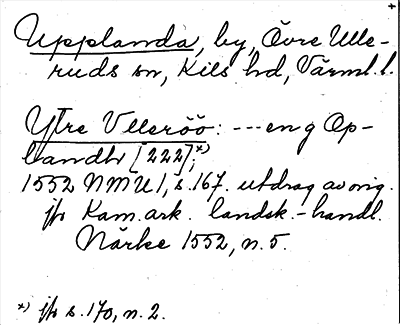 Upplanda, by, Övre Ulle-
ruds sn, Kils hd, Värml. l.
Yttre Vlleröö: --- en g Op-
landh [222];*)
1552 NMU 1, s. 167. utdrag av orig.
jfr Kam. ark. landsk.-handl.
Närke 1552, n. 5.
*) jfr s. 170, n. 2.